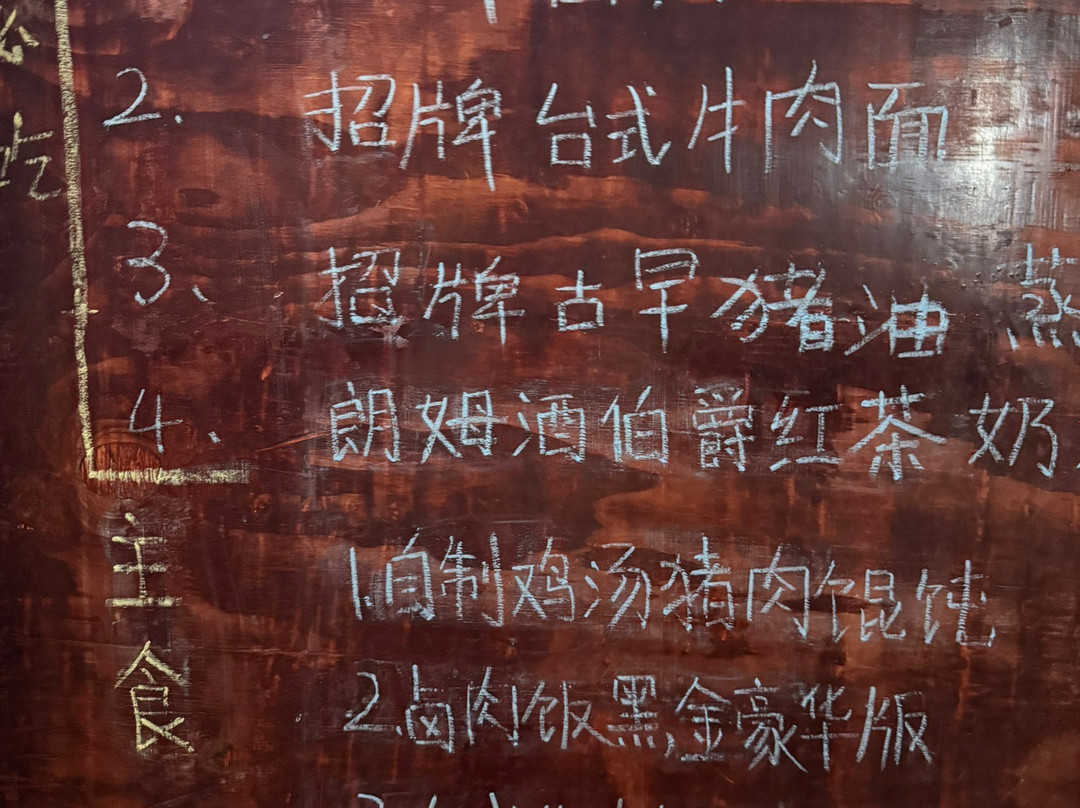 2. 招牌台式牛肉面
3、招牌古早猪油 蒸
4、朗姆酒伯爵红茶奶
主食
1.自制鸡汤猪肉馄饨
2.卤肉饭黑金豪华版